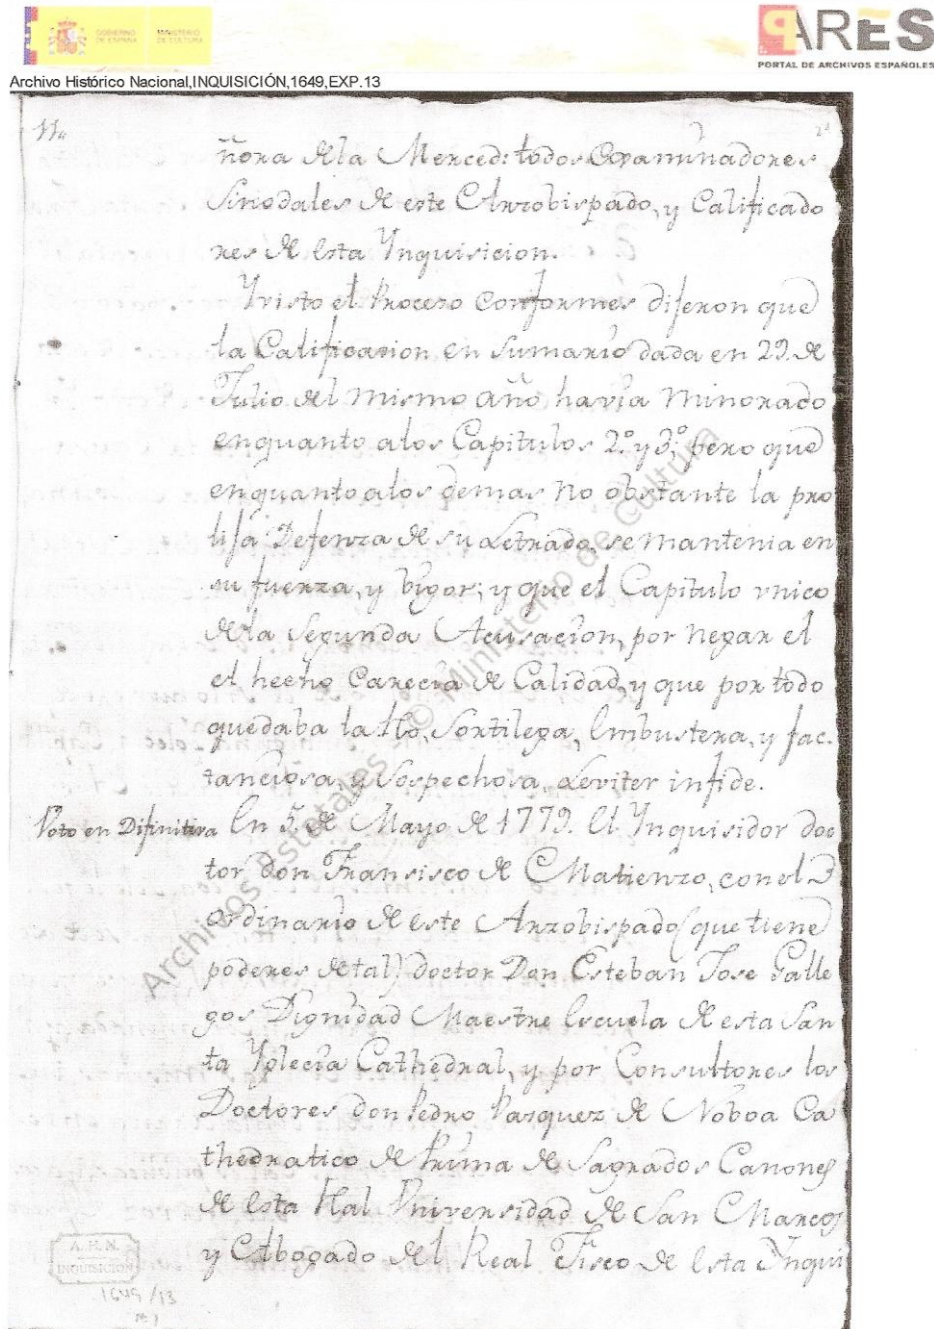 GOBIERNO DE ESPAÑA
MINISTERIO DE CULTURA
PARES
PORTAL DE ARCHIVOS ESPAÑOLES
Archivo Histórico Nacional,INQUISICIÓN,1649,EXP.13
11.
ñora de la Merced: todos Examinadores
Sinodales de este Arzobispado, y Calificado
res de esta Ynquisicion.
Yvisto el Proceso Conformes dijeron que
la Calificacion en sumario dada en 29. de
Julio del mismo año havia minorado
enquanto alos Capitulos 2º y 3º; pero que
enquanto alos demas no obstante la pro
lija Defenza de su Letrado, se mantenia en
su fuerza, y vigor; y que el Capitulo vnico
de la Segunda Acusacion, por negar el
el hecho Carecia de Calidad, y que por todo
quedaba la Rô, Sortilega, Embustera, y jac
tanciosa, y Sospechosa Leviter in fide.
Voto en Difinitiva
En 5. de Mayo de 1779. El Ynquisidor doc
tor don Francisco de Matienzo, con el
ordinario de este Arzobispado (que tiene
poderes de tal) doctor Don Esteban Jose Galle
gos Dignidad Maestre Escuela de esta San
ta Yglecia Cathedral, y por Consultores los
Doctores don Pedro Vasquez de Noboa Ca
thedratico de Prima de Sagrados Canones
de esta Rial Vniversidad de San Marcos
y Abogado del Real Fisco de esta Ynqui
Archivos Estatales © Ministerio de Cultura
A.H.N.
INQUISICION
1649/13